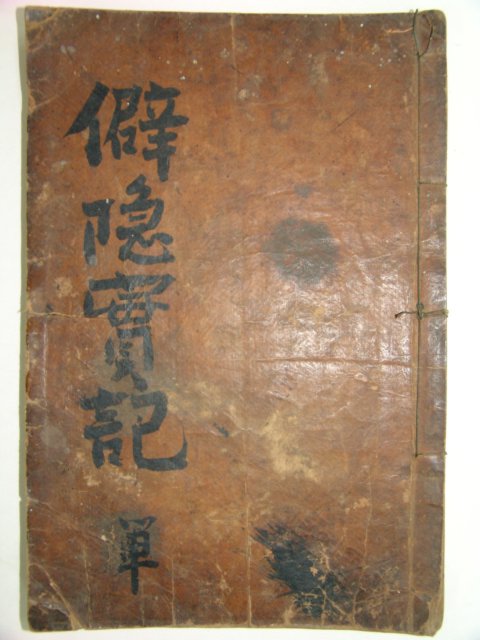 僻隐實記
單